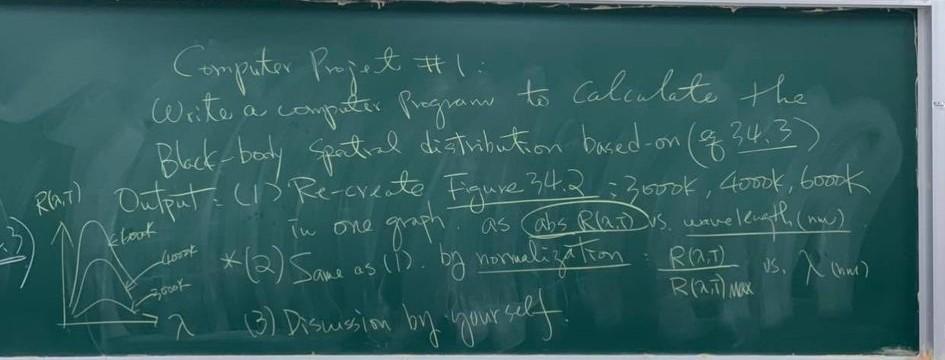 Computer Projet #1:
Write a computer Program to calculate the
Black-body spectral distribution based-on (eq 34.3)
Output: (1) Re-create Figure 34.2 : 3000K, 4000K, 6000K
in one graph. as abs R(λ,T) vs. wavelength (nm)
*(2) Same as (1). by normalization : R(λ,T) / R(λ,T) Max vs. λ (nm)
(3) Discussion by yourself.
R(λ,T)
6000K
4000K
3000K
λ
.3)